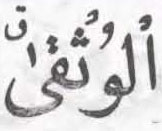 الْوُثْقٰى ق